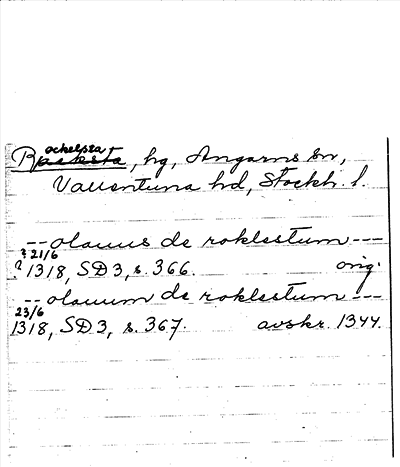 Rockelsta, hg, Angarns sn,
Vallentuna hd, Stockh. l.
-- olauus de roklestum ---
? 21/6
? 1318, SD 3, s. 366. orig.
-- olauum de roklestum ---
23/6
1318, SD 3, s. 367. avskr. 1344.